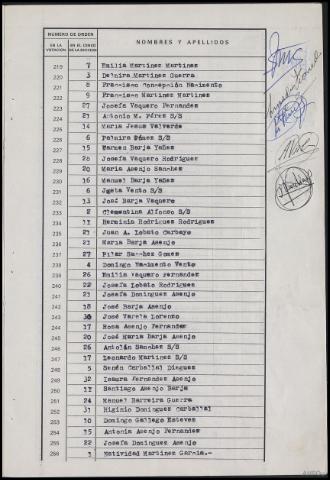 NUMERO DE ORDEN
NOMBRES Y APELLIDOS
EN LA VOTACION
EN EL CENSO DE LA SECCION
219 7 Emilia Martinez Martinez
220 3 Delmira Martinez Guerra
221 8 Francisco Concepción Nacimento
222 9 Francisco Martinez Martinez
223 27 Josefa Vaquero Fernandez
224 21 Antonio M. Pérez S/S
225 14 Maria Jesus Valverde
226 6 Palmira Dámez S/S
227 15 Manuel Barja Yañez
228 28 Josefa Vaquero Rodriguez
229 20 Maria Asenjo Sanchez
230 16 Manuel Barja Yañez
231 6 Vento S/S
232 13 José Barja Vaquero
233 2 Clementina Alfonso S/S
234 11 Herminia Rodriguez Rodriguez
235 21 Juan A. Lobato Carbayo
236 21 Maria Barja Asenjo
237 27 Pilar Sanchez Gomez
238 4 Domingo Nacimento Vento
239 26 Emilia Vaquero Fernandez
240 22 Josefa Lobato Rodriguez
241 21 Josefa Dominguez Asenjo
242 18 José Barja Asenjo
243 30 José Varela Lorenzo
244 17 Rosa Asenjo Fernandez
245 20 José Maria Barja Asenjo
246 26 Antolin Sanchez S/S
247 17 Leonardo Martinez S/S
248 5 Senén Carballal Dieguez
249 32 Isaura Fernandez Asenjo
250 12 Santiago Asenjo Barja
251 24 Manuel Barreira Guerra
252 31 Higinio Dominguez Carballal
253 10 Domingo Gallego Esteves
254 15 Antonia Asenjo Fernandez
255 22 Josefa Dominguez Asenjo
256 1 Natividad Martinez Garcia.-